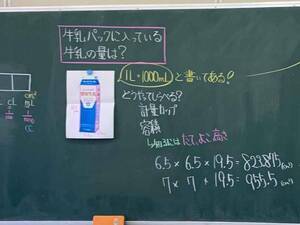 牛乳パックに入っている
牛乳の量は？
1L=1000mL と書いてある！
どうやってしらべる？
計量カップ
容積
たて よこ 高さ
6.5 × 6.5 × 19.5 = 823.875(cm³)
7 × 7 × 19.5 = 955.5(cm³)
cL
cm³
mL
cc